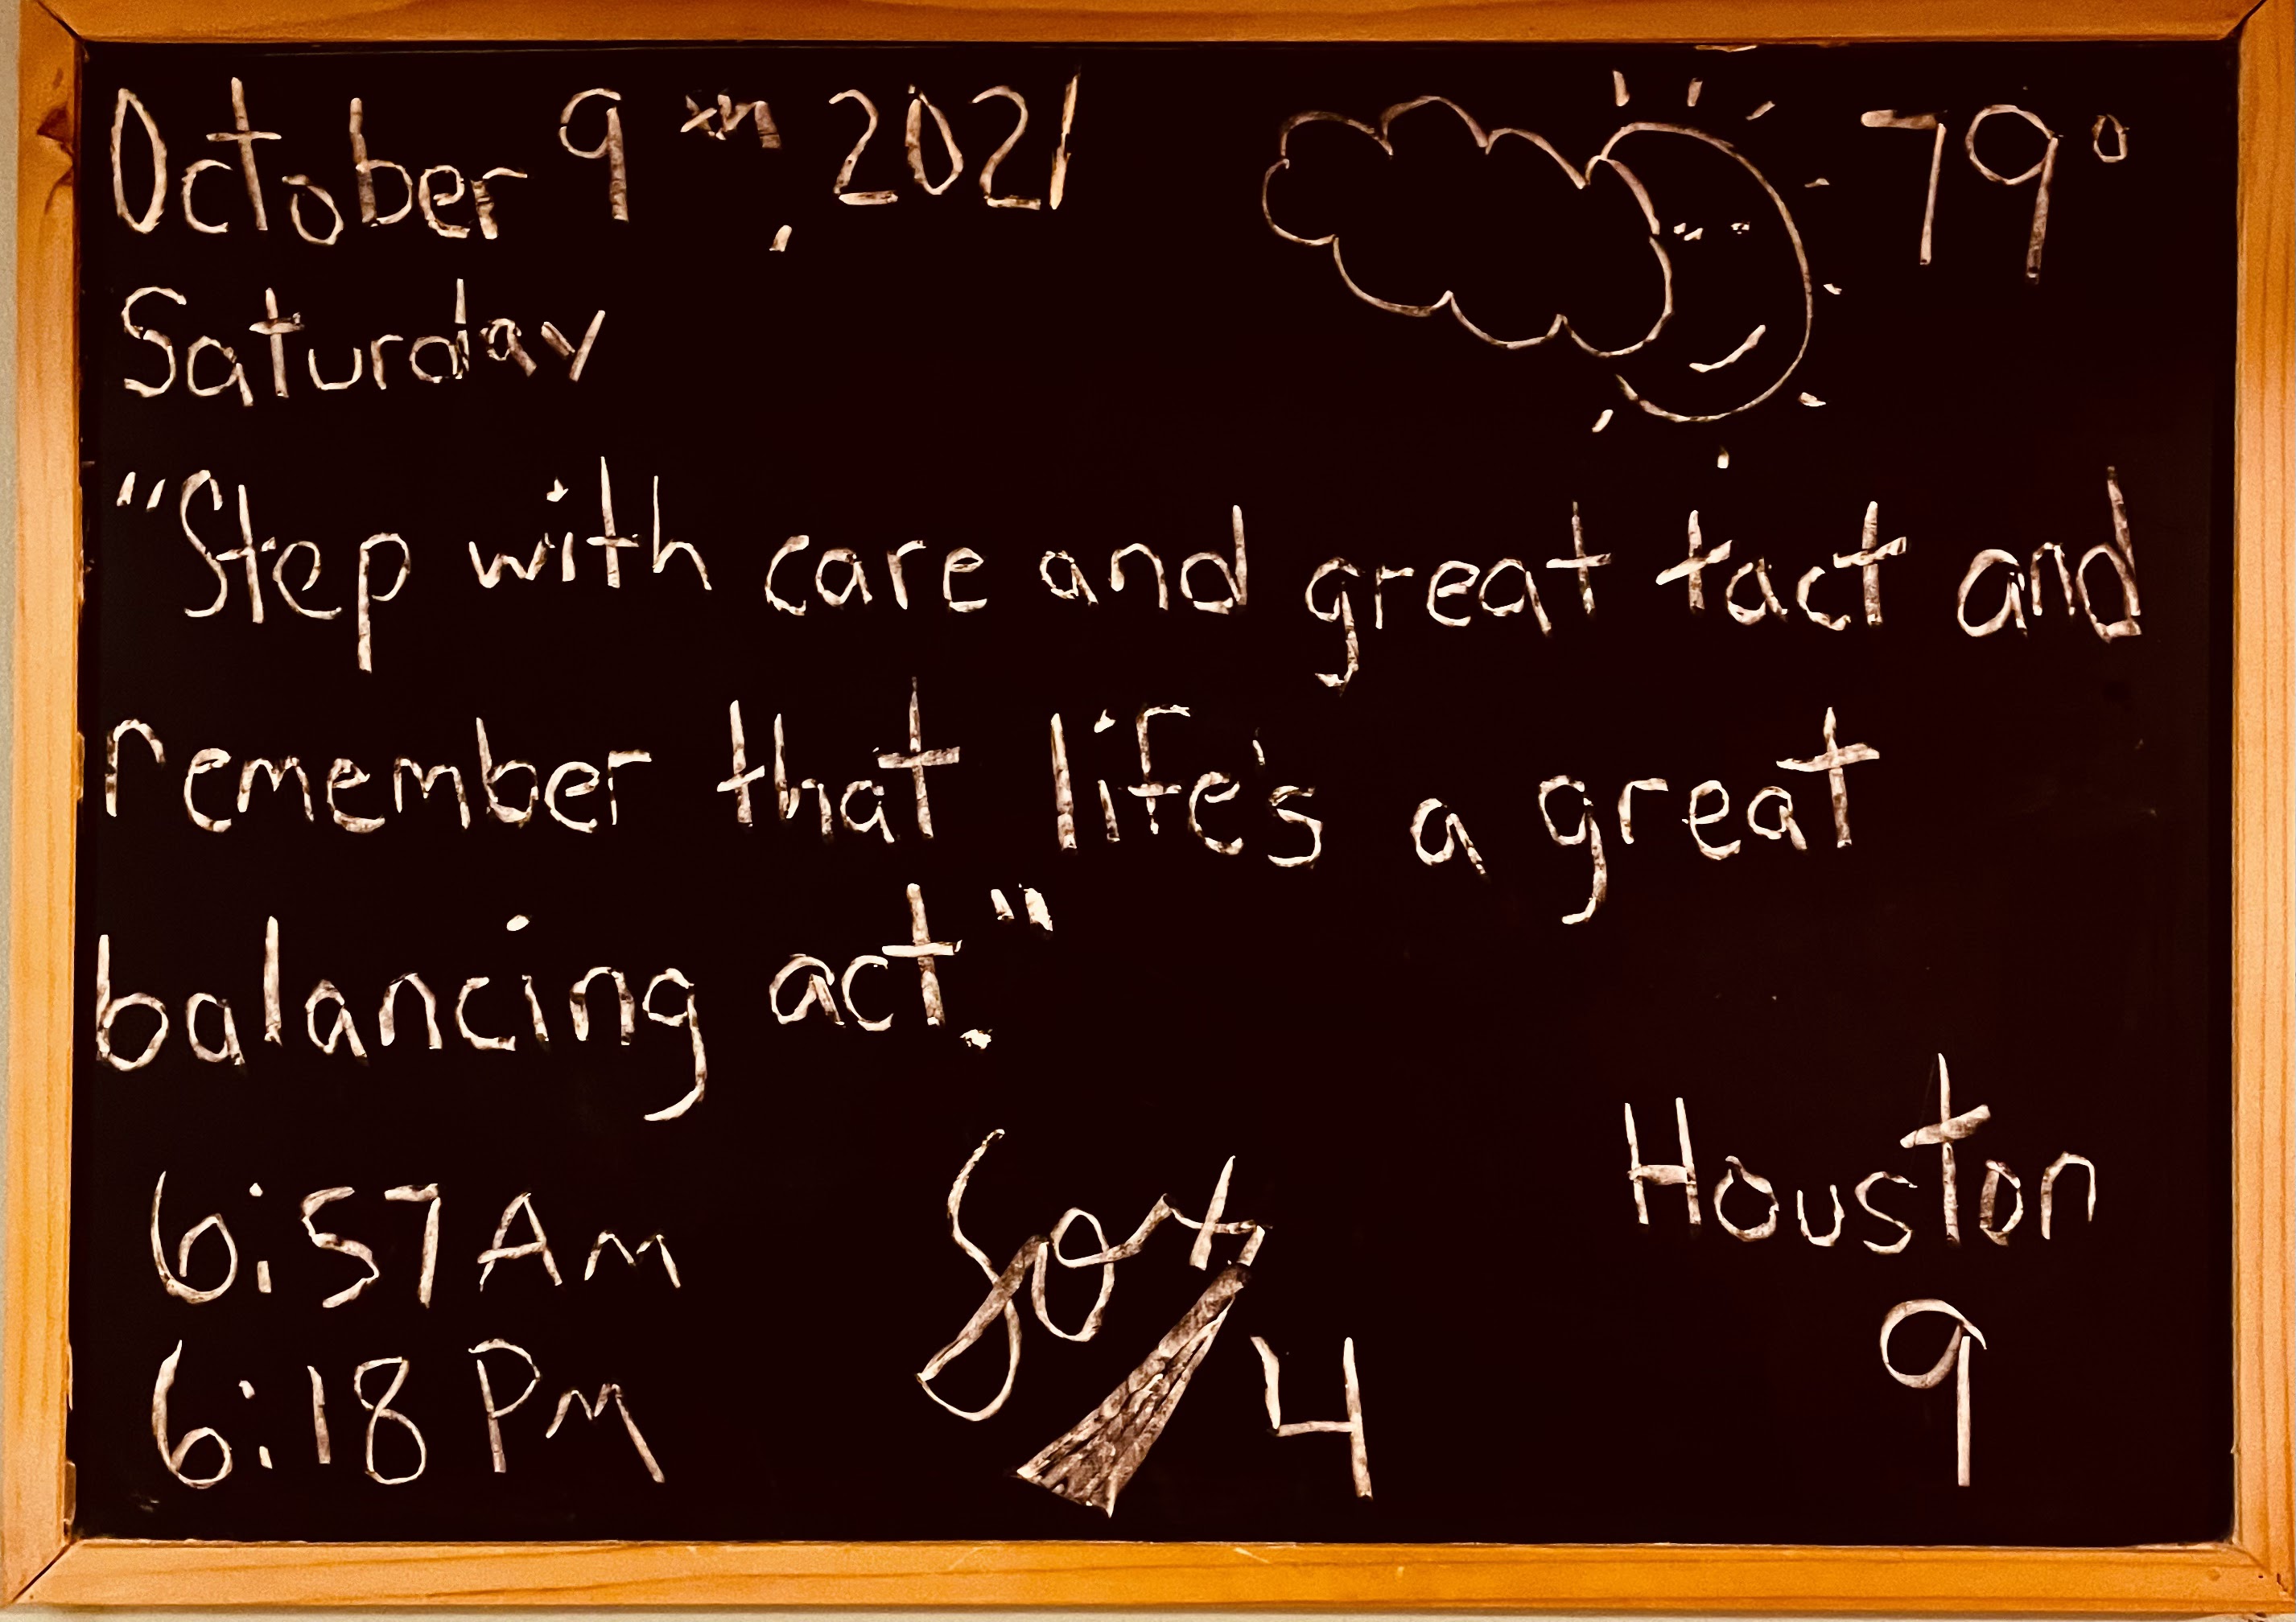 October 9th, 2021
79°
Saturday
"Step with care and great tact and
remember that life's a great
balancing act."
6:57 AM
6:18 PM
Sox
4
Houston
9